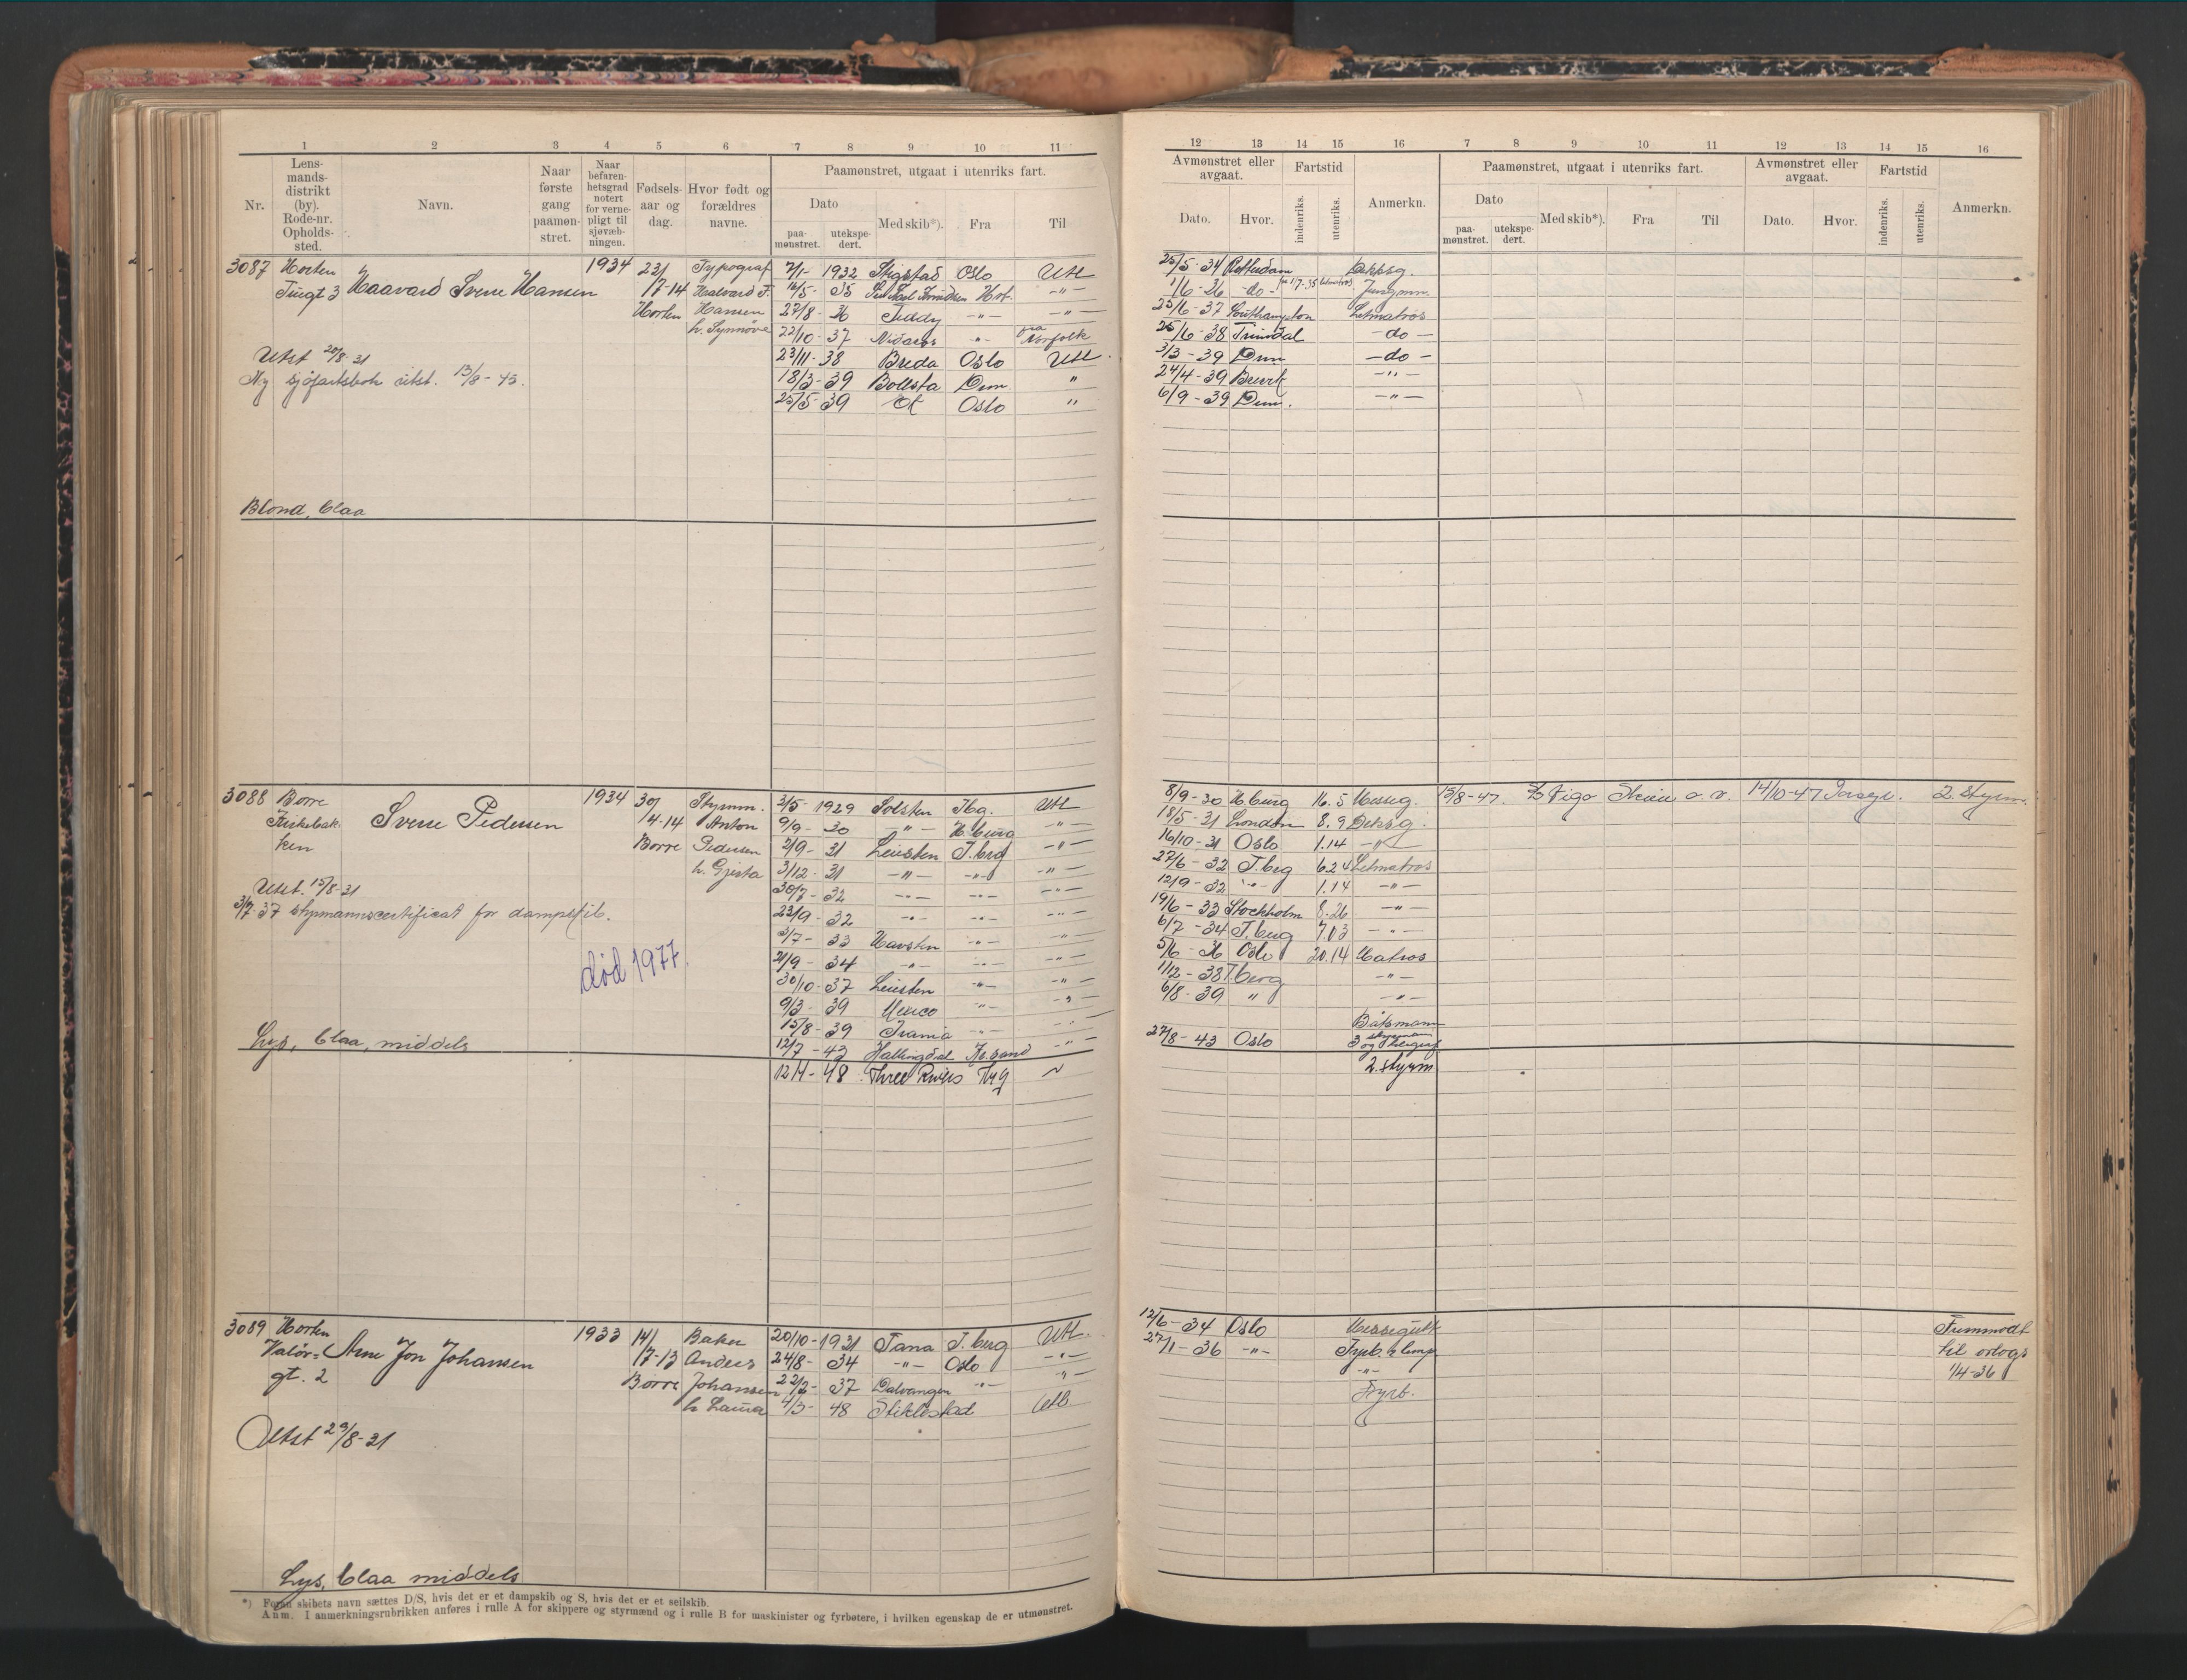 1 2 3 4 5 6 7 8 9 10 11
Nr. Lensmandsdistrikt (by). Rode-nr. Opholdssted. Navn. Naar første gang paamønstret. Naar befarenhetsgrad notert for vernepligt til sjøvæbningen. Fødselsaar og dag. Hvor født og forældres navne. Paamønstret, utgaat i utenriks fart.
Dato paamønstret. utekspedert. Med skib*). Fra Til
3087 Horten Haavard Sverre Hansen 1934 23/7-14 Typograf 7/1- 1932 Stigstad Oslo Utl
Tingt 3 Horten Halvard F. 16/5- 35 Hrt. -"-
Hansen 27/8- 36 -"- -"-
h. Synnøve 22/10- 37 Nidaros -"- fra Norfolk
Utst 20/8-31 23/11- 38 Breda Oslo Utl.
Ny sjøfartsbok utst. 13/8-45. 18/3- 39 Bollsta Drm. "
25/5- 39 Oslo "
Blond, blaa
3088 Borre Sverre Pedersen 1934 30/4-14 Styrm. 3/5- 1929 Solsten Tbg. Utl
Kirkebak- Borre Anton 9/9- 30 -"- H.burg -"-
ken Pedersen 2/9- 31 Leiesten T.berg -"-
h. Gjerta 3/12- 31 -"- -"- -"-
Utst. 15/8-31 30/7- 32 -"- -"- -"-
3/7-37 styrmannscertificat for dampskib. 23/9- 32 -"- -"- -"-
3/7- 33 Havsten -"- -"-
død 1977. 21/9- 34 -"- -"- -"-
30/10- 37 Leiesten -"- -"-
9/3- 39 Mexico -"- -"-
15/8- 39 Irania -"- -"-
Lys, blaa, middels 12/7- 43 Hallingdal Kr.sand -"-
12/4- 48 Three Rivers Tbg
3089 Horten Arne Jon Johansen 1933 14/7-13 Baker 20/10-1931 Tana T.berg Utl.
Valør= Borre Anders 24/8- 34 -"- Oslo -"-
gt. 2 Johansen 22/2- 37 Dalvangen -"- -"-
h Laura 4/3- 48 Stiklestad Utl
Utst 29/8-31
Lys, blaa middels
*) Foran skibets navn sættes D/S, hvis det er et dampskib og S, hvis det er et seilskib.
Anm. I anmerkningsrubrikken anføres i rulle A for skippere og styrmænd og i rulle B for maskinister og fyrbøtere, i hvilken egenskap de er utmønstret.
12 13 14 15 16 7 8 9 10 11 12 13 14 15 16
Avmønstret eller avgaat. Fartstid Anmerkn. Paamønstret, utgaat i utenriks fart. Avmønstret eller avgaat. Fartstid Anmerkn.
Dato. Hvor. indenriks. utenriks. Dato paamønstret. utekspedert. Med skib*). Fra Til Dato. Hvor. indenriks. utenriks.
25/5-34 Rotterdam Dekksg.
1/6-36 -do- fra 1/7-35 letmatros Jungmn.
23/6-37 Southampton Letmatros
25/6-38 Trinidad -do-
3/3-39 Drm -do-
24/4-39 Brevik -"-
6/9-39 Drm. -"-
8/9-30 H.burg 16.5 Messeg. 15/8-47. Vigo Skien a.v. 14/10-47 2. Styrm.
18/5-31 London 8.9 Deksg.
16/10-31 Oslo 1.14 -"-
27/6-32 T.berg 6.24 Letmatros
12/9-32 -"- 1.14 -"-
19/6-33 Stockholm 8.26 -"-
6/7-34 T.berg 7.03 -"-
5/6-36 Oslo 20.14 Matros
1/12-38 T.berg -"-
6/8-39 " -"-
Båtsmann
27/8-43 Oslo 3 styrmann og Telegraf
2. styrm
12/6-34 Oslo Messegutt Fremmødt
27/1-36 -"- Fyrb. & lemp til orlogs
-"- 1/4-36
Fyrb.